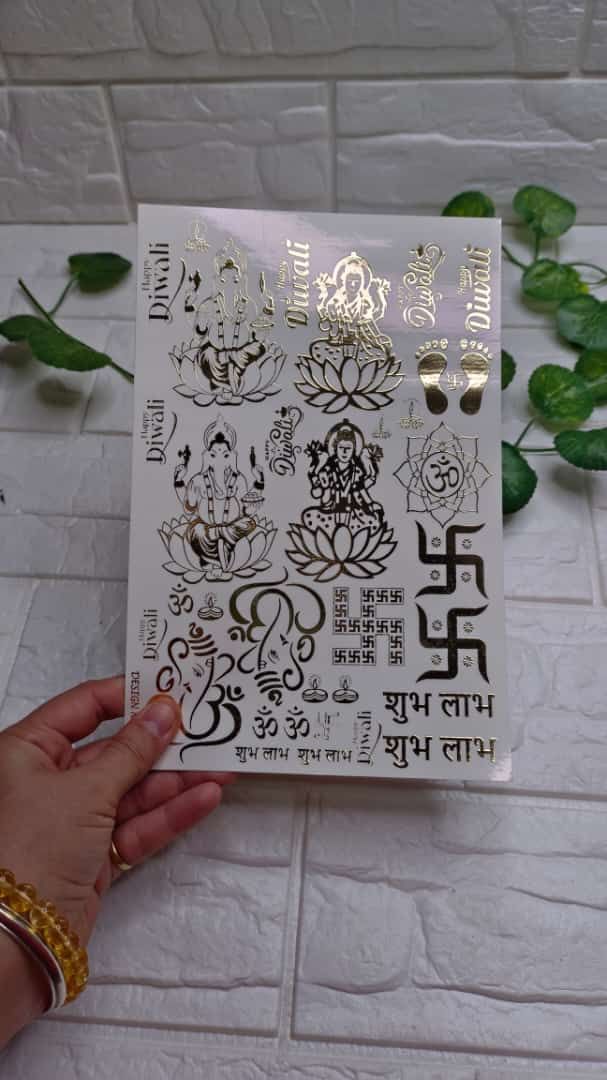 Happy
Diwali
Happy
Diwali
Happy
Diwali
Happy
Diwali
Happy
Diwali
Happy
Diwali
ॐ
Happy
Diwali
ॐ
ॐ
Happy
Diwali
ॐ ॐ
शुभ लाभ
शुभ लाभ
शुभ लाभ
शुभ लाभ
DESIGN